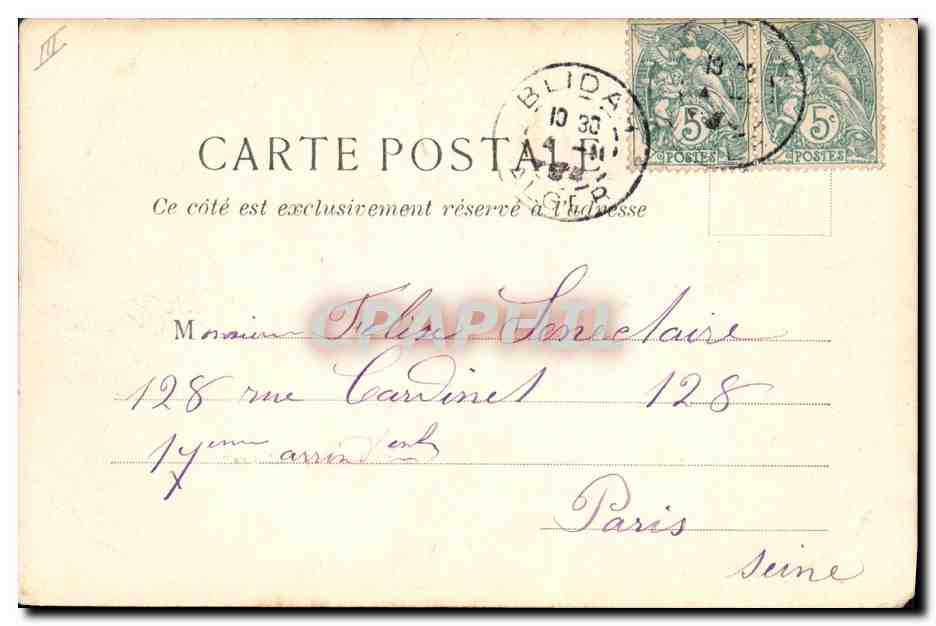 III
BLIDA
10 30
ALGER
5c 5c
POSTES POSTES
CARTE POSTALE
Ce côté est exclusivement réservé à l'adresse
CPAPHIL
Monsieur Félix Senectaire
128 rue Cardinet 128
17eme arrondent
Paris
Seine